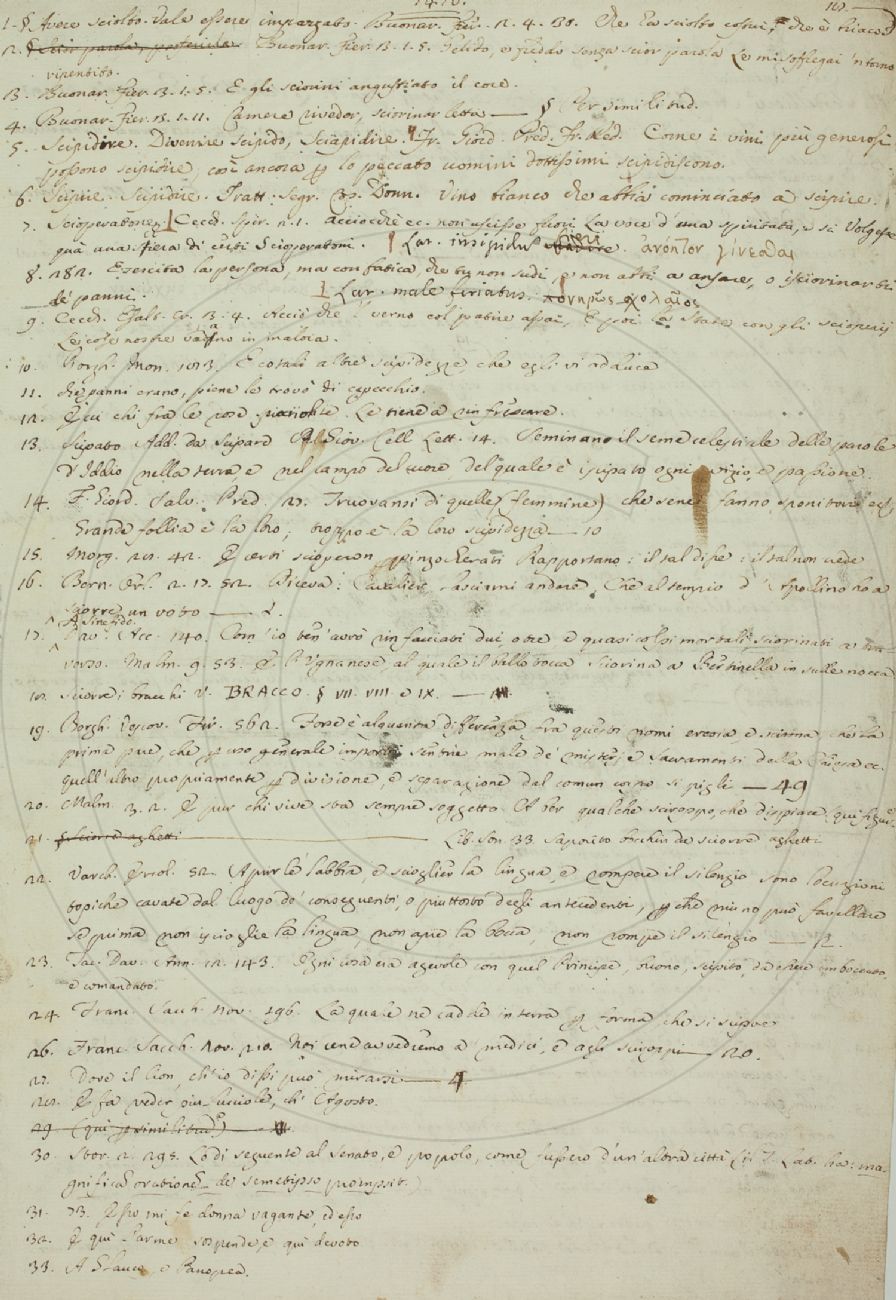 1. § Avere sciolto. Vale essere impazzato. Buonar. Fier. 2. 4. 30. che è briaco
2. Buonar. Fier. 3. 1. 5. Gelido, e freddo senza scior parola Le mi soffregai 'ntorno
ripentito.
3. Buonar. Fier. 3. 1. 5. E gli sciorini angustiato il core.
4. Buonar. Fier. 3. 1. 11. Camere riveder, sciorinar letta — § Per similitud.
5. Scipidire. Divenire scipido, Sciapidire. Fr. Giord. Pred. Fr. Red. Come i vini più generosi
possono scipidire, così ancora per lo peccato uomini dottissimi scipidiscono.
6. Scipire. Scipidire. Tratt. segr. cos. Donn. Vino bianco che abbia cominciato a scipire.
7. Scioperatone. Cecch. Spir. 2. 1. acciocchè ec. non uscisse fuori La voce d'una spiritata, e si Volgesse
qua una fiera di questi Scioperatoni. Lat. insipidum fieri. ἀνόητον γίνεσθαι
8. 282. Esercita la persona, ma con fatica, che tu non sudi, e non abbi a ansare, o isciorinarti
de' panni. Lat. male feriatus. πονηρῶς σχολαῖος
9. Cecch. Esalt. cr. 3. 4. Acciò che 'l verno col patire assai, E poi la State con gli scioperii
Le cose nostre vadano in malora.
10. Borgh. Mon. 173. E cotali altre scipidezze che egli vi adduce
11. che panni erano, piene le trovò di capecchio.
12. Qui chi fra le cose Le tiene a
13. Scipato. Add. da Scipare. B. Giov. Cell. Lett. 14. Seminano il seme celestiale delle parole
d'Iddio nella terra e nel campo del cuore del quale è iscipato ogni vizio, e passione.
14. F. Giord. Salv. Pred. 27. Truovansi di quelle (femmine) che sene fanno sponitori ec.
Grande follia è la loro; troppo è la loro scipidezza — 10
15. Morg. 27. 42. E certi scioperon pinzocherati Rapportano: il tal disse: il tal non crede
16. Bern. Orl. 2. 17. 52. Diceva: Cavalier, lasciami andare, Che al tempio d'Apollino ho a
sciorre un voto — 2.
17. Dav. Acc. 140. Com'io ben' avrò in facciati dui, o tre e quasi colpi mortali, sciorinati a
verso. Malm. 9. 53. E Brignanese al quale il ballo tocca Sciorina a Bertinella in sulle nocca
18. Sciorre i bracchi v. BRACCO. § VII. VIII e IX. —
19. Borgh. Vescov. Fir. 562. Forse è alquanta differenza fra questi nomi eresia, e scisma, che la
prima pare, che per uso generale importi sentire male de' misterj, e Sacramenti della Chiesa ec.
quell'altro propiamente per divisione, e separazione dal comun corpo si pigli — 49
20. Malm. 3. 2. E pur chi vive sta sempre soggetto A ber qualche sciroppo, che dispiace (qui figur.
21. § Sciorre aghetti — Lib. Son. 33. Saporito Archin da sciorre aghetti
22. Varch. Ercol. 52. Aprir le labbra, e scioglier la lingua, e rompere il silenzio sono locuzioni
topiche cavate dal luogo de' conseguenti, o piuttosto degli antecedenti, perchè niuno può favellare
se prima non iscioglie la lingua, non apre la bocca, non rompe il silenzio — 2.
23. Tac. Dav. Ann. 12. 143. Ogni cosa era agevole con quel Principe, buono, scipito, da essere imboccato,
e comandato.
24. Franc. Sacch. Nov. 196. La quale ne cadde in terra per forma che si scipoe
26. Franc. Sacch. Nov. 210. Noi ce ne avvedremo a' medici, e agli sciroppi — 20.
27. Dove il lion, ch'io dissi può mirarsi — 4
28. E fa veder più lucciole, ch'Agosto.
29. (qui per similitud.) —
30. Stor. 2. 295. Lo dì seguente al Senato, e popolo, come fussero d'un'altra città (il T. Lat. ha: ma-
gnificam orationem de semetipso prompsit.)
31. 73. Esso mi fe donna vagante, ed esso
32. E qui l'arme sospende, e qui devoto
33. A Glauco, e Panopea.